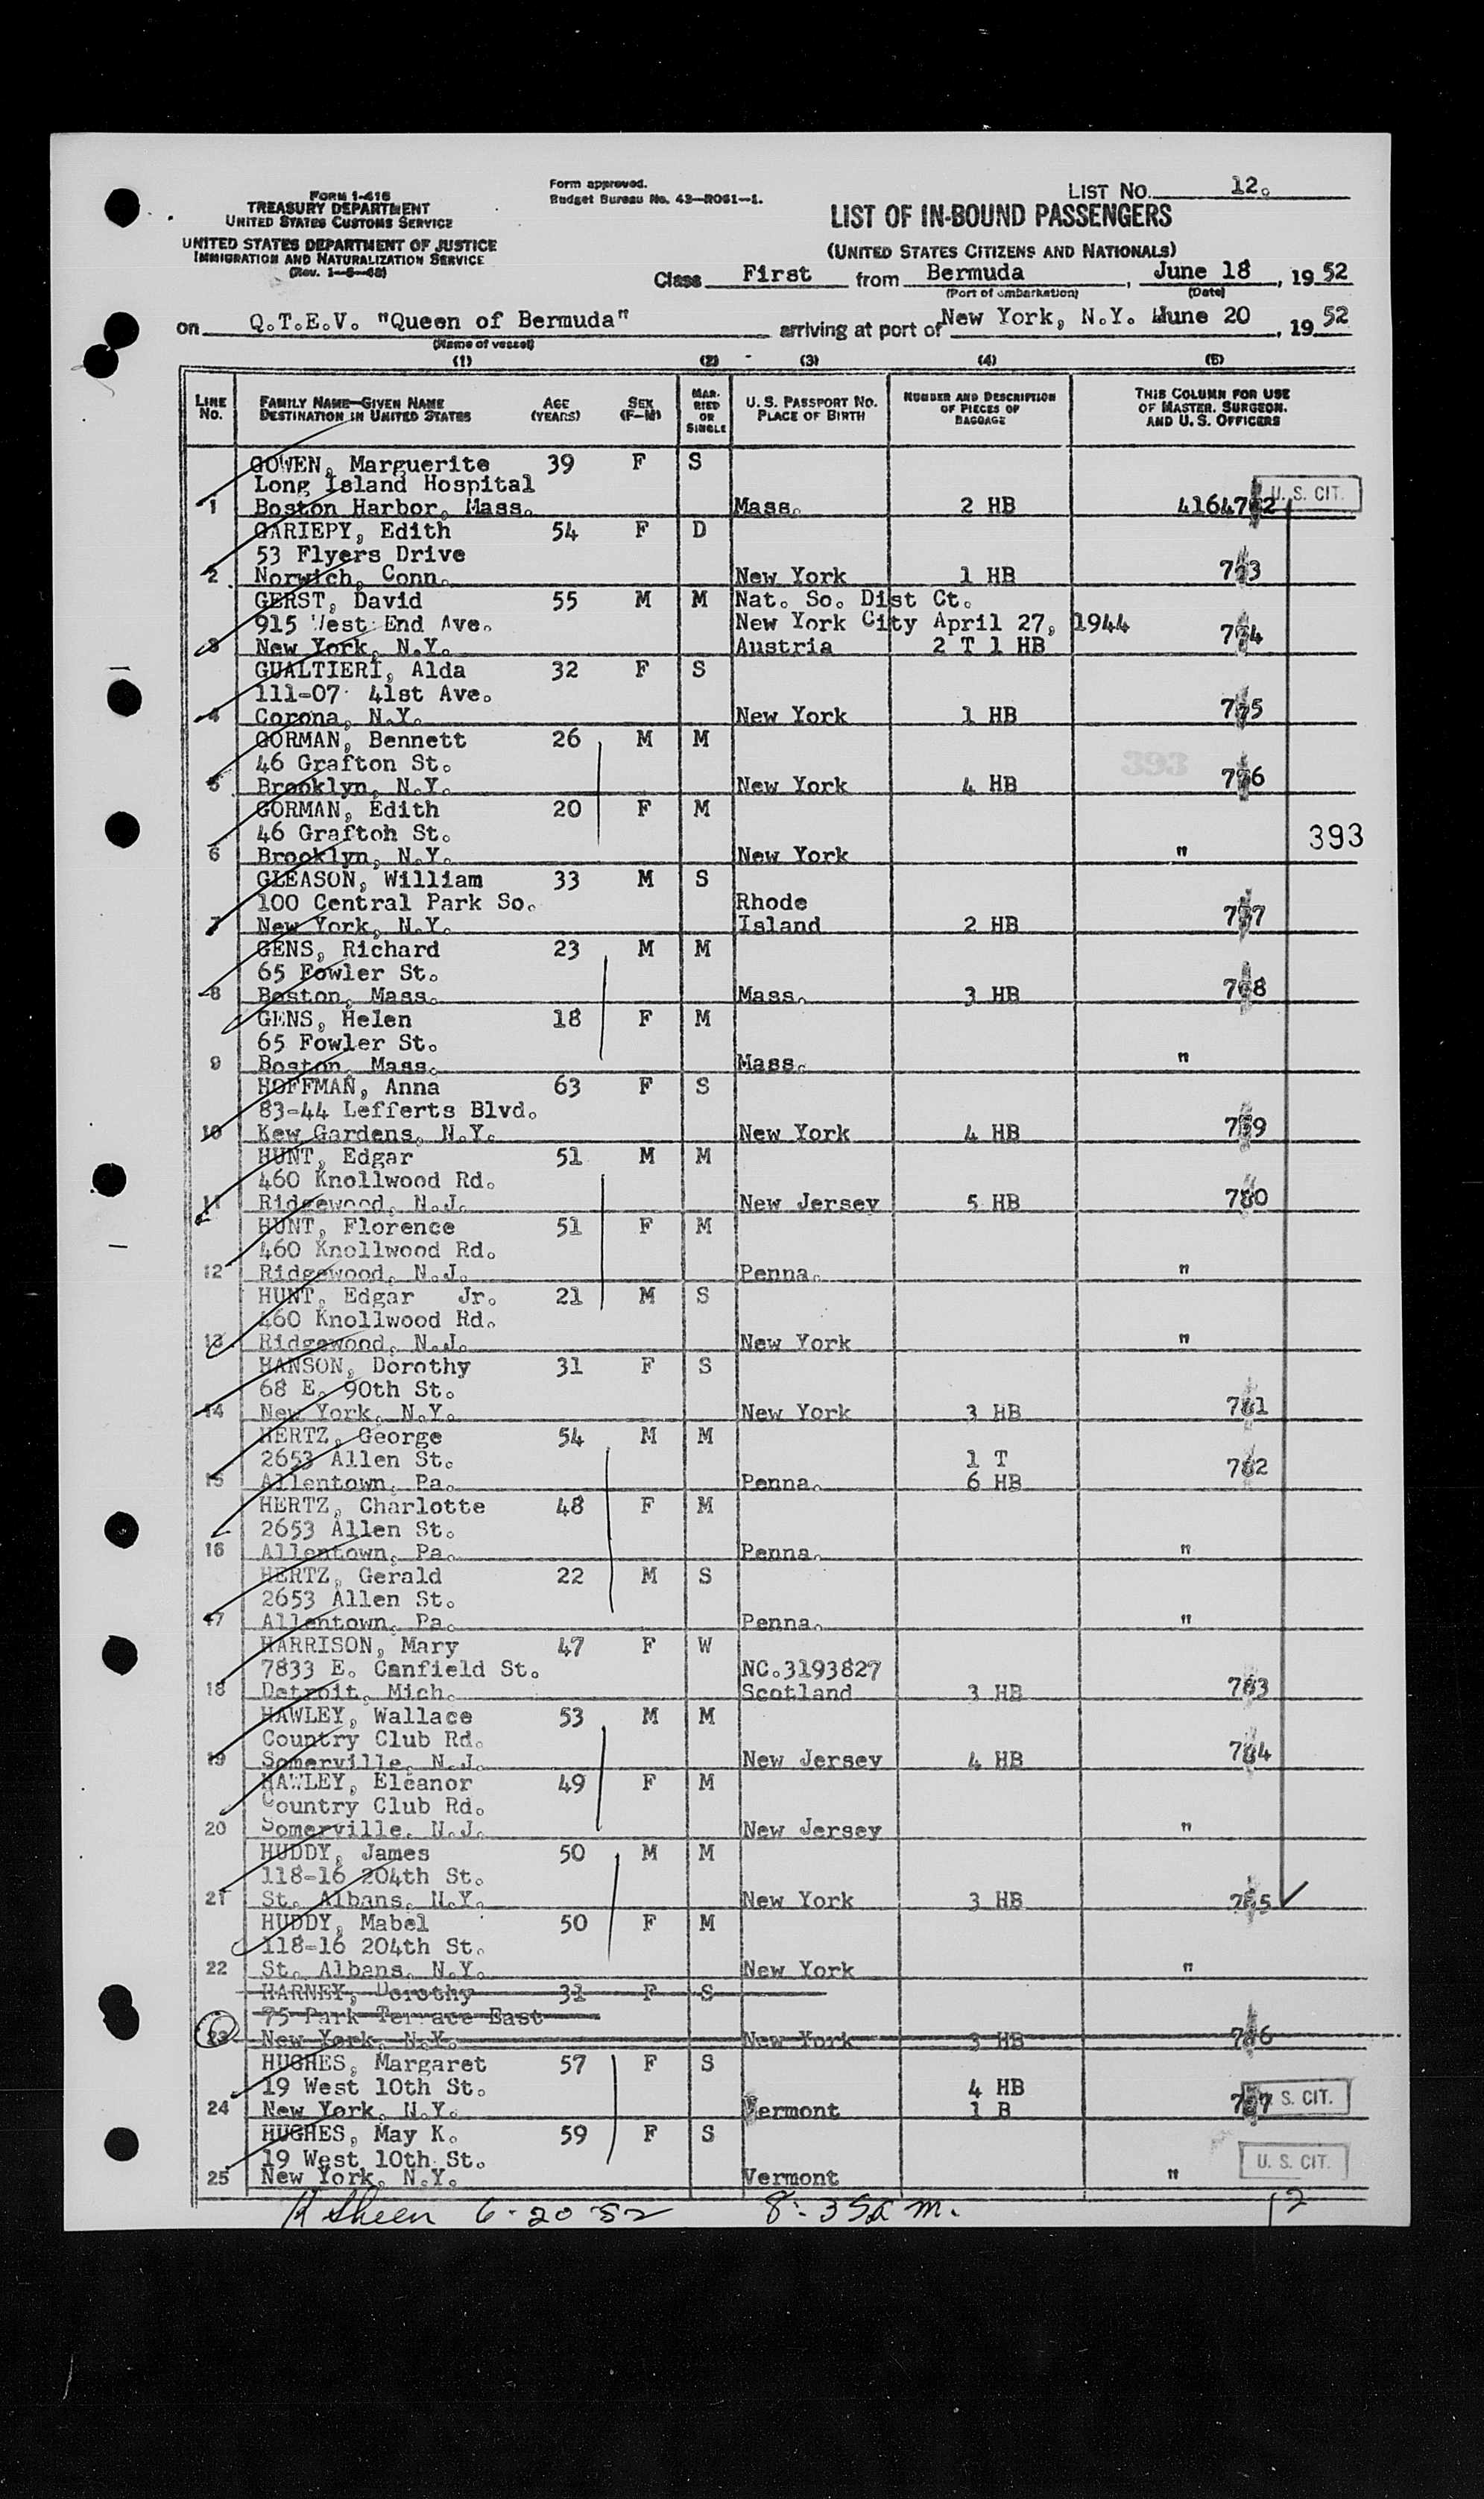 Form I-418
TREASURY DEPARTMENT
UNITED STATES CUSTOMS SERVICE
UNITED STATES DEPARTMENT OF JUSTICE
IMMIGRATION AND NATURALIZATION SERVICE
Form approved.
Budget Bureau No. 43-R061-1.
LIST NO. 12.
LIST OF IN-BOUND PASSENGERS
(UNITED STATES CITIZENS AND NATIONALS)
Class First from Bermuda, June 18, 1952
(Port of embarkation) (Date)
on Q.T.E.V. "Queen of Bermuda" arriving at port of New York, N.Y. June 20, 1952
(Name of vessel)
(1) (2) (3) (4) (5)
LINE No. FAMILY NAME—GIVEN NAME DESTINATION IN UNITED STATES AGE (YEARS) SEX (F—M) MARRIED OR SINGLE U. S. PASSPORT NO. PLACE OF BIRTH NUMBER AND DESCRIPTION OF PIECES OF BAGGAGE THIS COLUMN FOR USE OF MASTER, SURGEON, AND U. S. OFFICERS
GOWEN, Marguerite 39 F S
Long Island Hospital U. S. CIT.
1 Boston Harbor, Mass. Mass. 2 HB
GARIEPY, Edith 54 F D
53 Flyers Drive
2 Norwich, Conn. New York 1 HB
GERST, David 55 M M Nat. So. Dist Ct.
915 West End Ave. New York City April 27, 1944
3 New York, N.Y. Austria 2 T 1 HB
GUALTIERI, Alda 32 F S
111-07 41st Ave.
4 Corona, N.Y. New York 1 HB
GORMAN, Bennett 26 M M
46 Grafton St. 393
5 Brooklyn, N.Y. New York 4 HB
GORMAN, Edith 20 F M
46 Grafton St. 393
6 Brooklyn, N.Y. New York "
GLEASON, William 33 M S
100 Central Park So. Rhode
7 New York, N.Y. Island 2 HB
GENS, Richard 23 M M
65 Fowler St.
8 Boston, Mass. Mass. 3 HB
GENS, Helen 18 F M
65 Fowler St.
9 Boston, Mass. Mass. "
HOFFMAN, Anna 63 F S
83-44 Lefferts Blvd.
10 Kew Gardens, N.Y. New York 4 HB
HUNT, Edgar 51 M M
460 Knollwood Rd.
11 Ridgewood, N.J. New Jersey 5 HB
HUNT, Florence 51 F M
460 Knollwood Rd.
12 Ridgewood, N.J. Penna. "
HUNT, Edgar Jr. 21 M S
460 Knollwood Rd.
13 Ridgewood, N.J. New York "
HANSON, Dorothy 31 F S
68 E. 90th St.
14 New York, N.Y. New York 3 HB
HERTZ, George 54 M M
2653 Allen St. 1 T
15 Allentown, Pa. Penna. 6 HB
HERTZ, Charlotte 48 F M
2653 Allen St.
16 Allentown, Pa. Penna. "
HERTZ, Gerald 22 M S
2653 Allen St.
17 Allentown, Pa. Penna. "
HARRISON, Mary 47 F W
7833 E. Canfield St. NC.3193827
18 Detroit, Mich. Scotland 3 HB
HAWLEY, Wallace 53 M M
Country Club Rd.
19 Somerville, N.J. New Jersey 4 HB
HAWLEY, Eleanor 49 F M
Country Club Rd.
20 Somerville, N.J. New Jersey "
HUDDY, James 50 M M
118-16 204th St.
21 St. Albans, N.Y. New York 3 HB
HUDDY, Mabel 50 F M
118-16 204th St.
22 St. Albans, N.Y. New York "
HARNEY, Dorothy 31 F S
75 Park Terrace East
23 New York, N.Y. New York 3 HB
HUGHES, Margaret 57 F S
19 West 10th St. 4 HB
24 New York, N.Y. Vermont 1 B S. CIT.
HUGHES, May K. 59 F S
19 West 10th St. U. S. CIT.
25 New York, N.Y. Vermont "
6-20-52 8:35 a m. 12